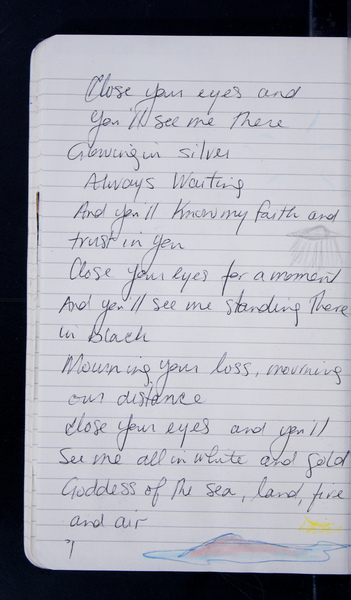 Close your eyes and
You'll see me there
Glowing in silver
Always Waiting
And you'll know my faith and
trust in you
Close your eyes for a moment
And you'll see me standing there
in black
Mourning your loss, mourning
our distance
Close your eyes and you'll
See me all in white and gold
Goddess of the sea, land, fire
and air